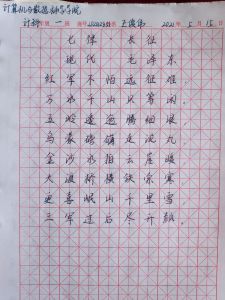 计算机与数据科学学院
计科 一班 2021年5月15日
七律 长征
现代 毛泽东
红军不怕远征难,
万水千山只等闲。
五岭逶迤腾细浪,
乌蒙磅礴走泥丸。
金沙水拍云崖暖,
大渡桥横铁索寒。
更喜岷山千里雪,
三军过后尽开颜。